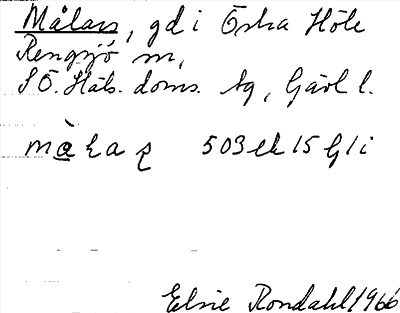 Målars, gd i Östra Höle
Rengsjö sn,
S Ö. Häls. doms. tg, Gävl l.
màlaʂ 503 ek 15 G l i
Elsie Rondahl 1966